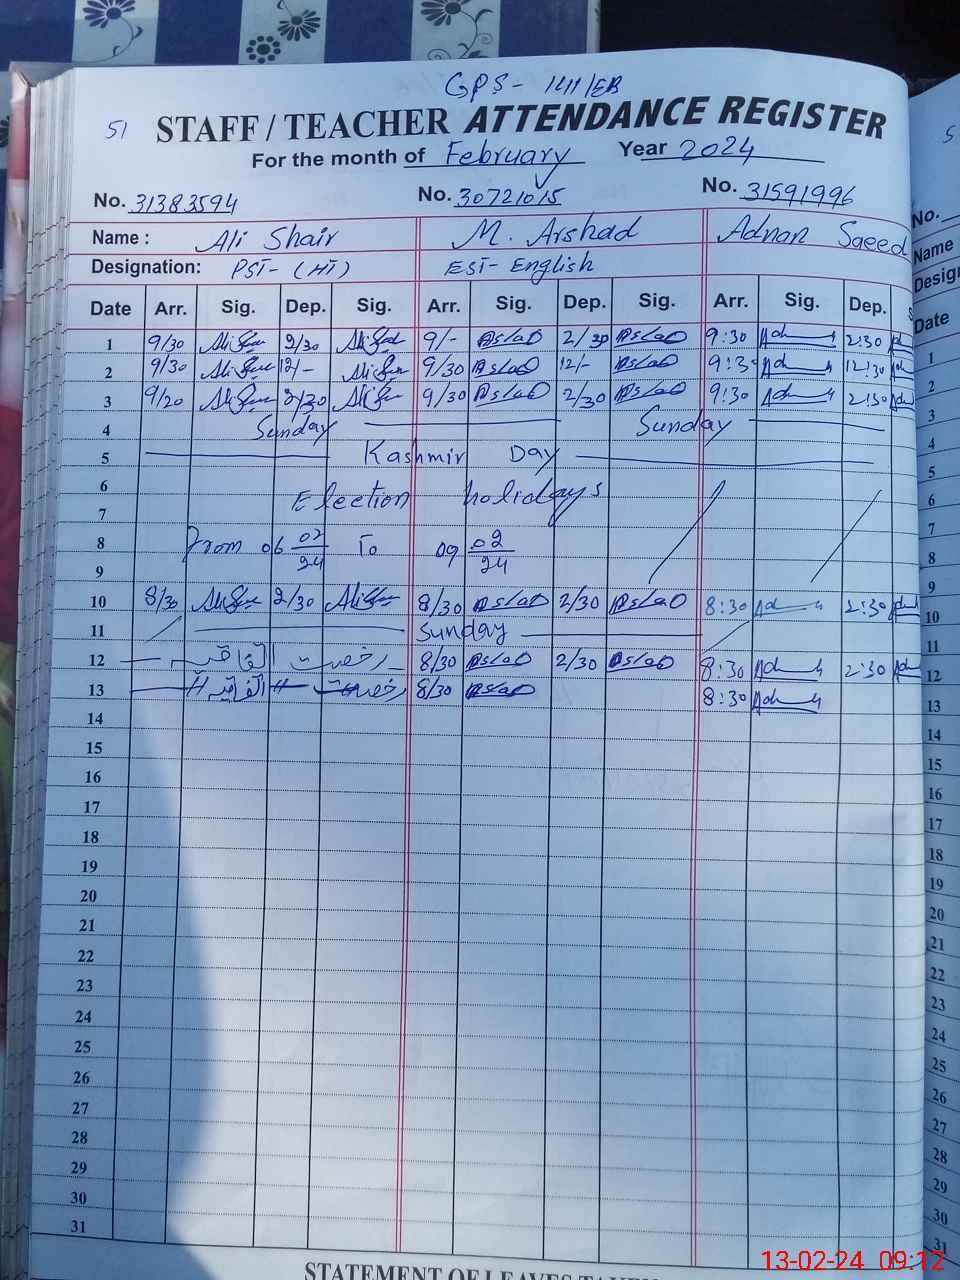 GPS - 1411/EB
51 STAFF / TEACHER ATTENDANCE REGISTER
For the month of February Year 2024
No. 31383594 No. 30721015 No. 31591996 No.
Name : Ali Shair M. Arshad Adnan Saeed Name
Designation: PST - (HT) EST - English
Date Arr. Sig. Dep. Sig. Arr. Sig. Dep. Sig. Arr. Sig. Dep. Date
1 9/30 2/30 9/- 2/30 9:30 2:30 1
2 9/30 12/- 9/30 12/- 9:3 12:30 2
3 9/20 2/30 9/30 2/30 9:30 2:30 3
4 Sunday Sunday 4
5 Kashmir Day 5
6 Election holidays 6
7 7
8 From 06 02/24 To 09 02/24 8
9 9
10 8/30 2/30 8/30 2/30 8:30 2:30 10
11 Sunday 11
12 رخصت اتفاقیہ 8/30 2/30 8:30 2:30 12
13 رخصت اتفاقیہ 8/30 8:30 13
14 14
15 15
16 16
17 17
18 18
19 19
20 20
21 21
22 22
23 23
24 24
25 25
26 26
27 27
28 28
29 29
30 30
31 31
STATEMENT OF LEAVES TAKEN
13-02-24 09:12